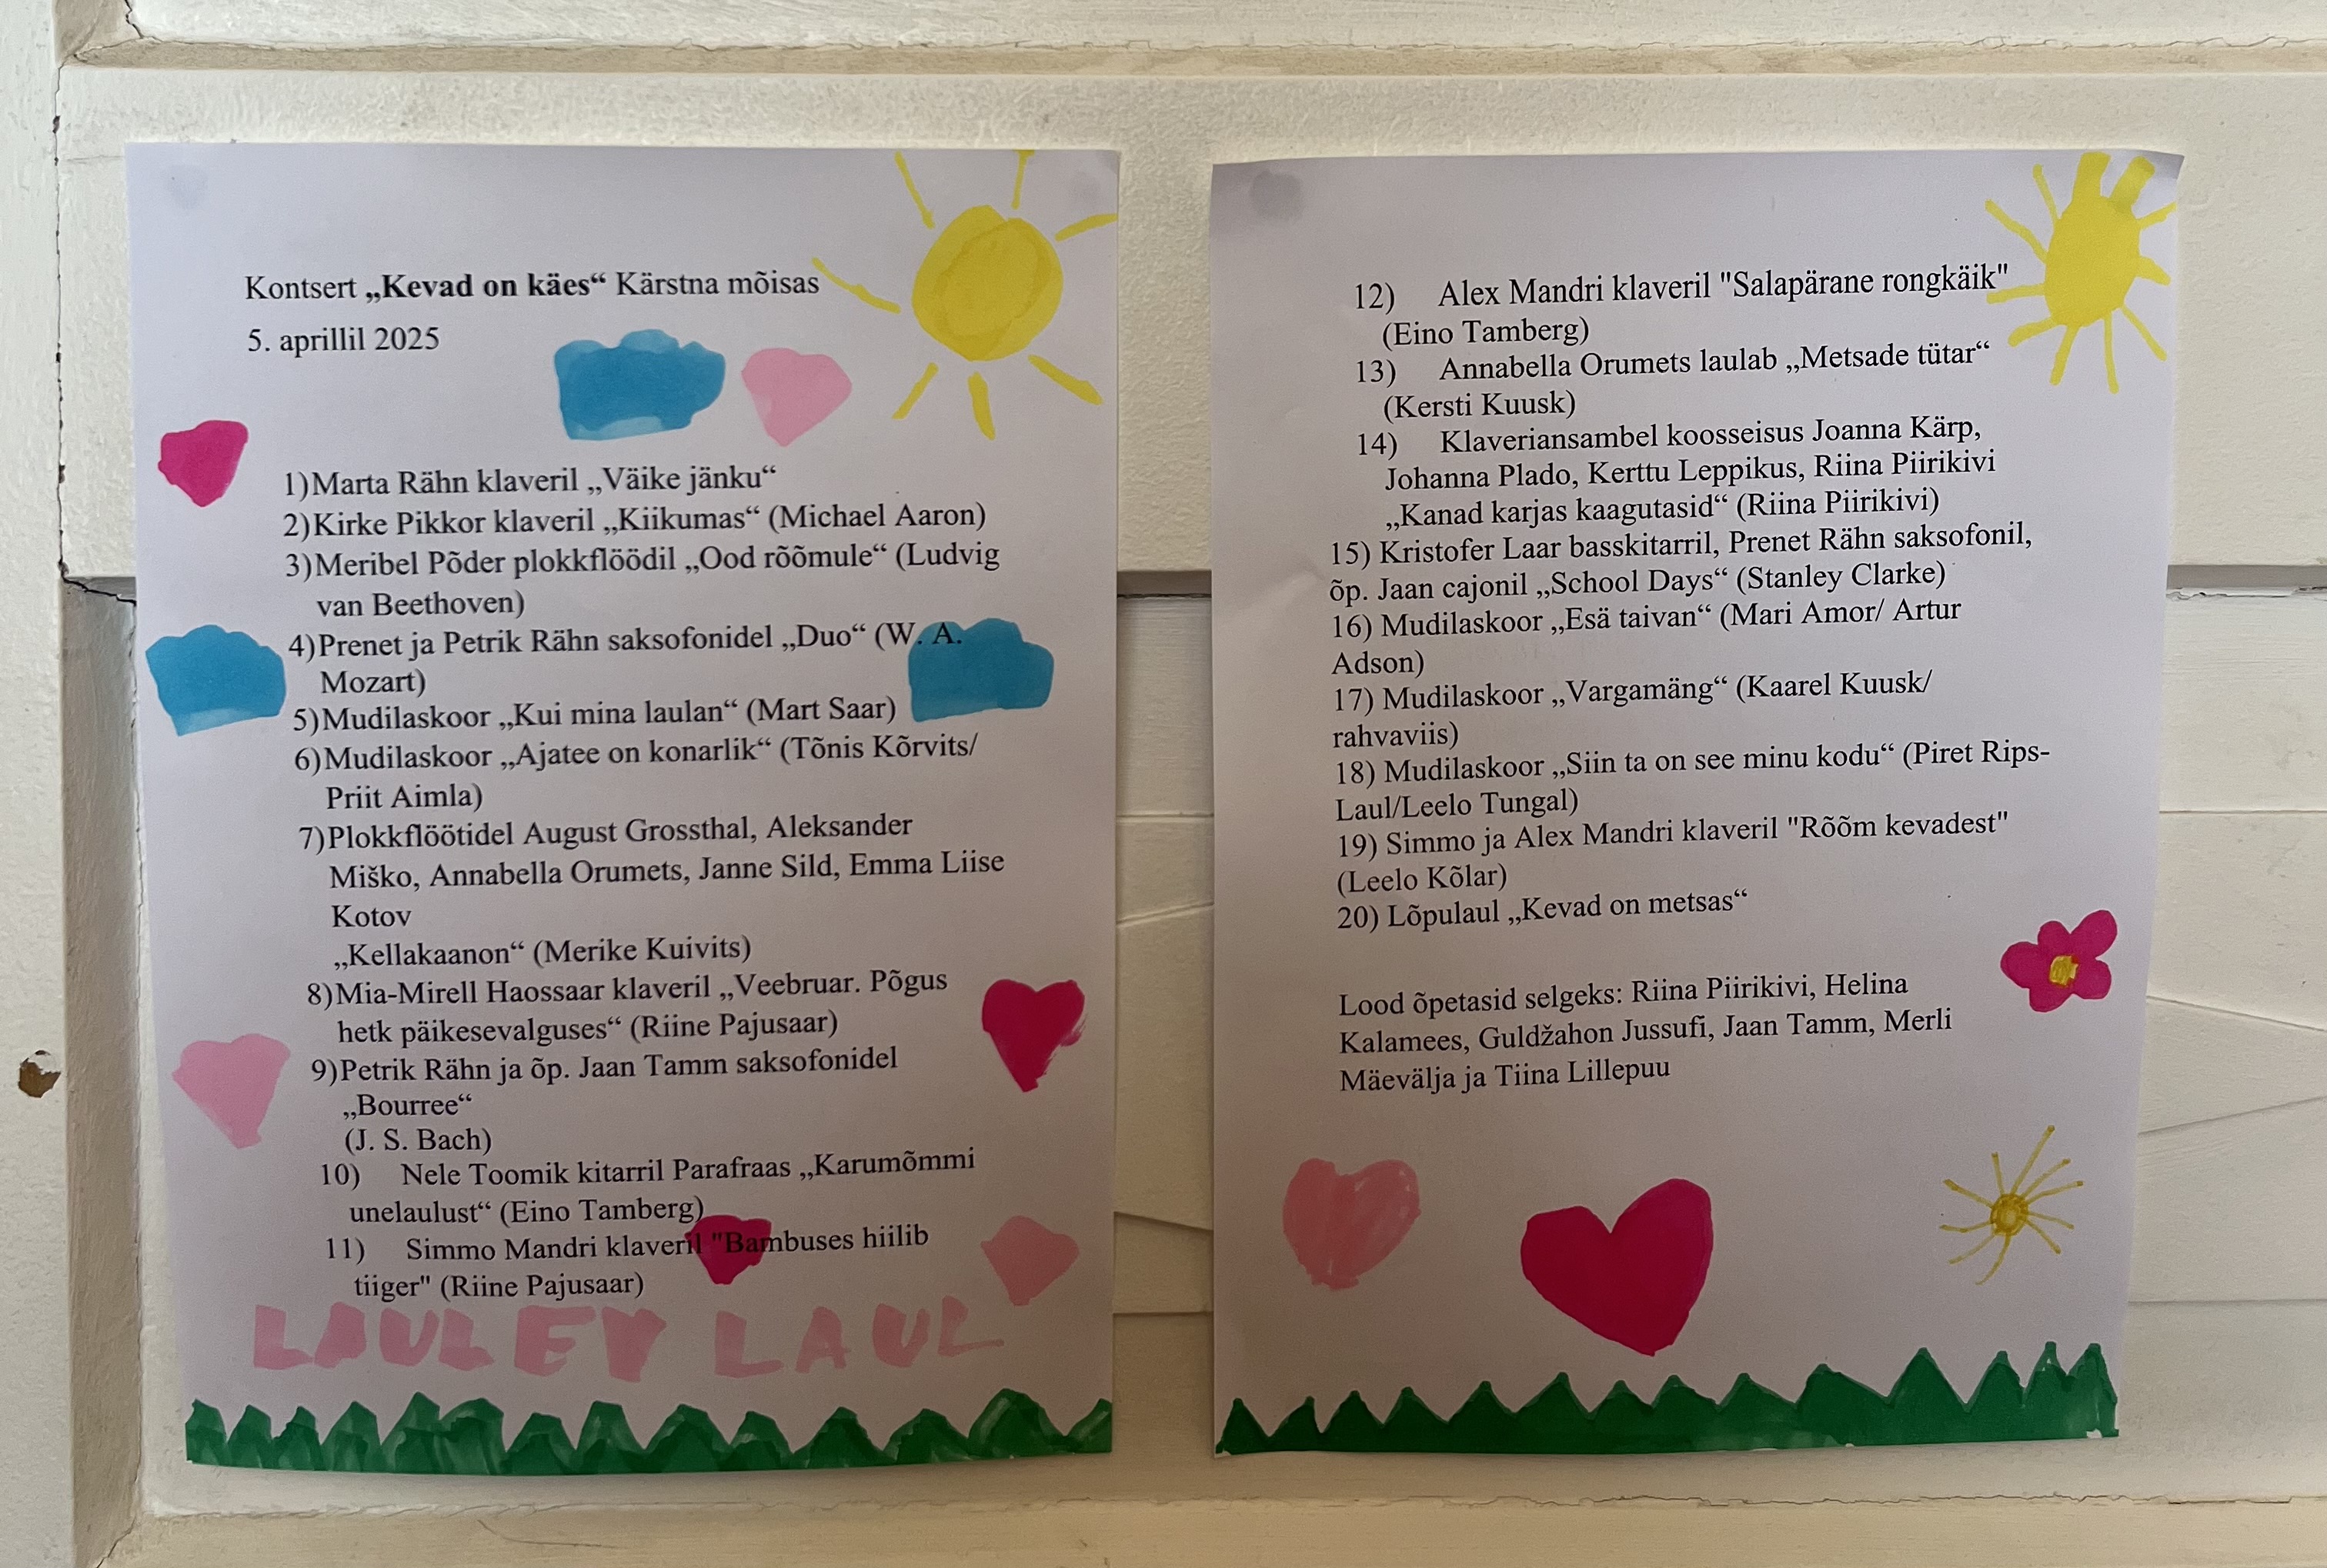 Kontsert „Kevad on käes“ Kärstna mõisas
5. aprillil 2025
1)Marta Rähn klaveril „Väike jänku“
2)Kirke Pikkor klaveril „Kiikumas“ (Michael Aaron)
3)Meribel Põder plokkflöödil „Ood rõõmule“ (Ludvig
van Beethoven)
4)Prenet ja Petrik Rähn saksofonidel „Duo“ (W. A.
Mozart)
5)Mudilaskoor „Kui mina laulan“ (Mart Saar)
6)Mudilaskoor „Ajatee on konarlik“ (Tõnis Kõrvits/
Priit Aimla)
7)Plokkflöötidel August Grossthal, Aleksander
Miško, Annabella Orumets, Janne Sild, Emma Liise
Kotov
„Kellakaanon“ (Merike Kuivits)
8)Mia-Mirell Haossaar klaveril „Veebruar. Põgus
hetk päikesevalguses“ (Riine Pajusaar)
9)Petrik Rähn ja õp. Jaan Tamm saksofonidel
„Bourree“
(J. S. Bach)
10) Nele Toomik kitarril Parafraas „Karumõmmi
unelaulust“ (Eino Tamberg)
11) Simmo Mandri klaveril "Bambuses hiilib
tiiger" (Riine Pajusaar)
LAULEV LAUL
12) Alex Mandri klaveril "Salapärane rongkäik"
(Eino Tamberg)
13) Annabella Orumets laulab „Metsade tütar“
(Kersti Kuusk)
14) Klaveriansambel koosseisus Joanna Kärp,
Johanna Plado, Kerttu Leppikus, Riina Piirikivi
„Kanad karjas kaagutasid“ (Riina Piirikivi)
15) Kristofer Laar basskitarril, Prenet Rähn saksofonil,
õp. Jaan cajonil „School Days“ (Stanley Clarke)
16) Mudilaskoor „Esä taivan“ (Mari Amor/ Artur
Adson)
17) Mudilaskoor „Vargamäng“ (Kaarel Kuusk/
rahvaviis)
18) Mudilaskoor „Siin ta on see minu kodu“ (Piret Rips-
Laul/Leelo Tungal)
19) Simmo ja Alex Mandri klaveril "Rõõm kevadest"
(Leelo Kõlar)
20) Lõpulaul „Kevad on metsas“
Lood õpetasid selgeks: Riina Piirikivi, Helina
Kalamees, Guldžahon Jussufi, Jaan Tamm, Merli
Mäevälja ja Tiina Lillepuu